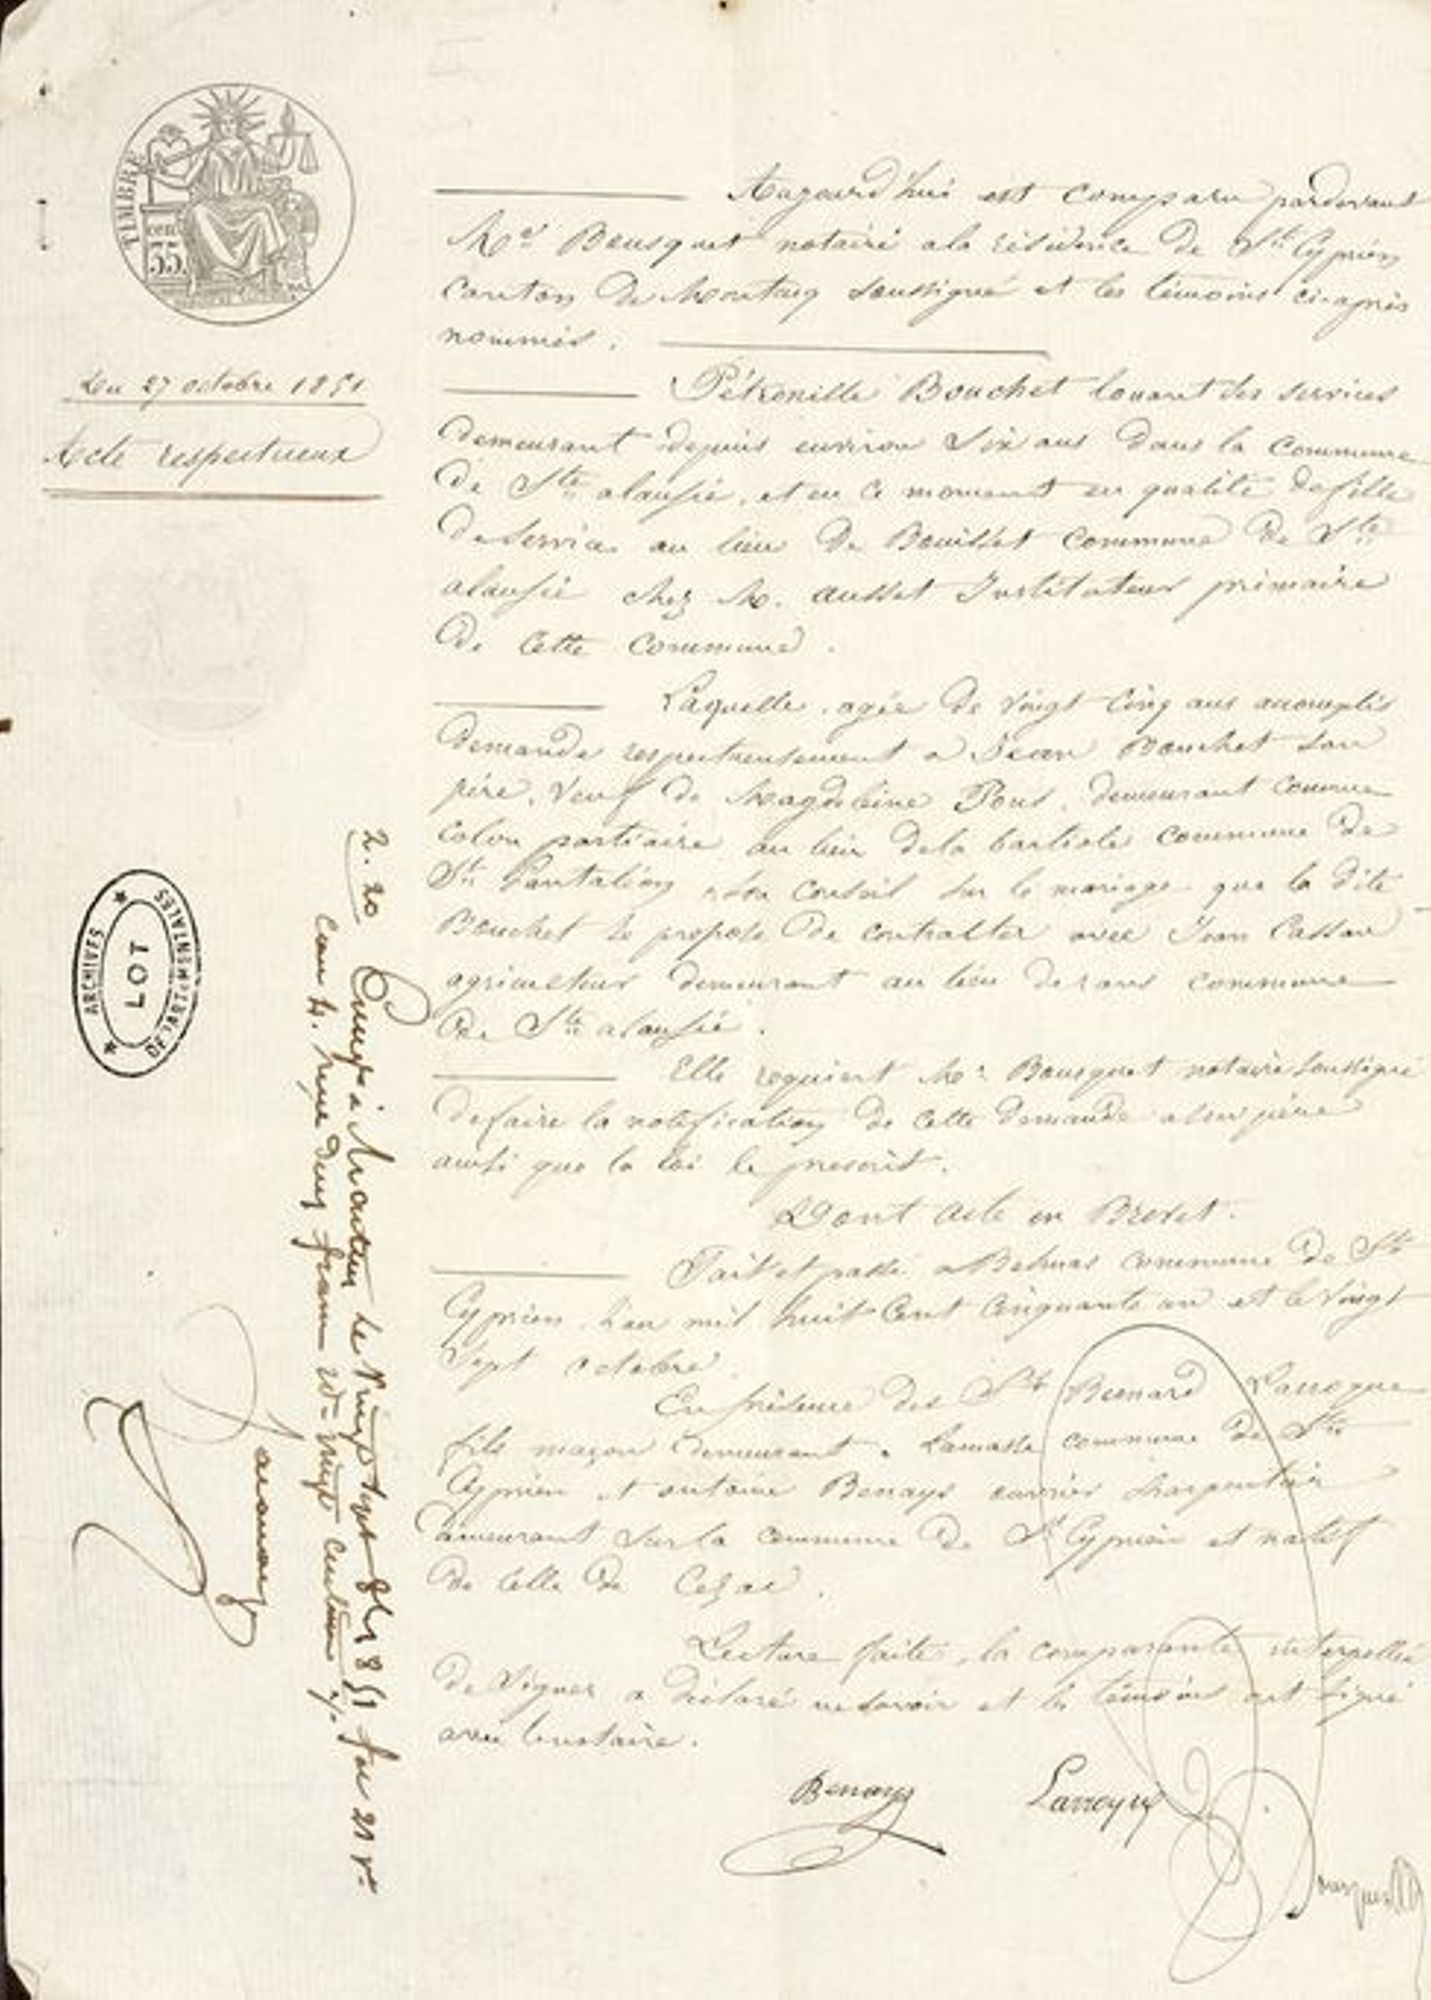 TIMBRE
cen
35.
Du 27 octobre 1851
Acte respectueux
Aujourd'hui est comparu pardevant
Me Bousquet notaire a la résidence de St Cyprien
Canton de Montcuq soussigné et les témoins ci-après
nommés.
Pétronille Bouchet louant ses services
demeurant depuis environ six ans dans la commune
de Ste alauzie, et en ce moment en qualité de fille
de service au lieu de Bouisset commune de Ste
alauzie chez M. Ausset Instituteur primaire
de cette commune.
Laquelle, agée de vingt cinq ans accomplis
demande respectueusement a Jean Bouchet son
père, veuf de Magdeleine Pons, demeurant comme
colon partiaire au lieu de la bastide commune de
St Pantaléon, son conseil sur le mariage que la dite
Bouchet se propose de contracter avec Jean Cassan
agriculteur demeurant au lieu de rans commune
de Ste alauzie.
Elle requiert Me Bousquet notaire soussigné
de faire la notification de cette demande a son père
ainsi que la loi le prescrit.
Dont acte en Brevet.
Fait et passé a Belmas commune de St
Cyprien, l'an mil huit cent cinquante un et le vingt
sept octobre.
En présence des Srs Bernard Larroque
fils maçon demeurant a Lamasse commune de St
Cyprien et antoine Benays ouvrier charpentier
demeurant sur la commune de St Cyprien et natif
de celle de Cezac.
Lecture faite, la comparante interpellée
de signer a déclaré ne savoir et les témoins ont signé
avec le notaire.
Benays
Larroque
Bousquet
2. 20
Enreg. à Montcuq le vingt sept 8bre 1851 fol 21 vo
Case 4. reçu deux francs et vingt centimes
ARCHIVES
DEPARTEMENTALES
LOT